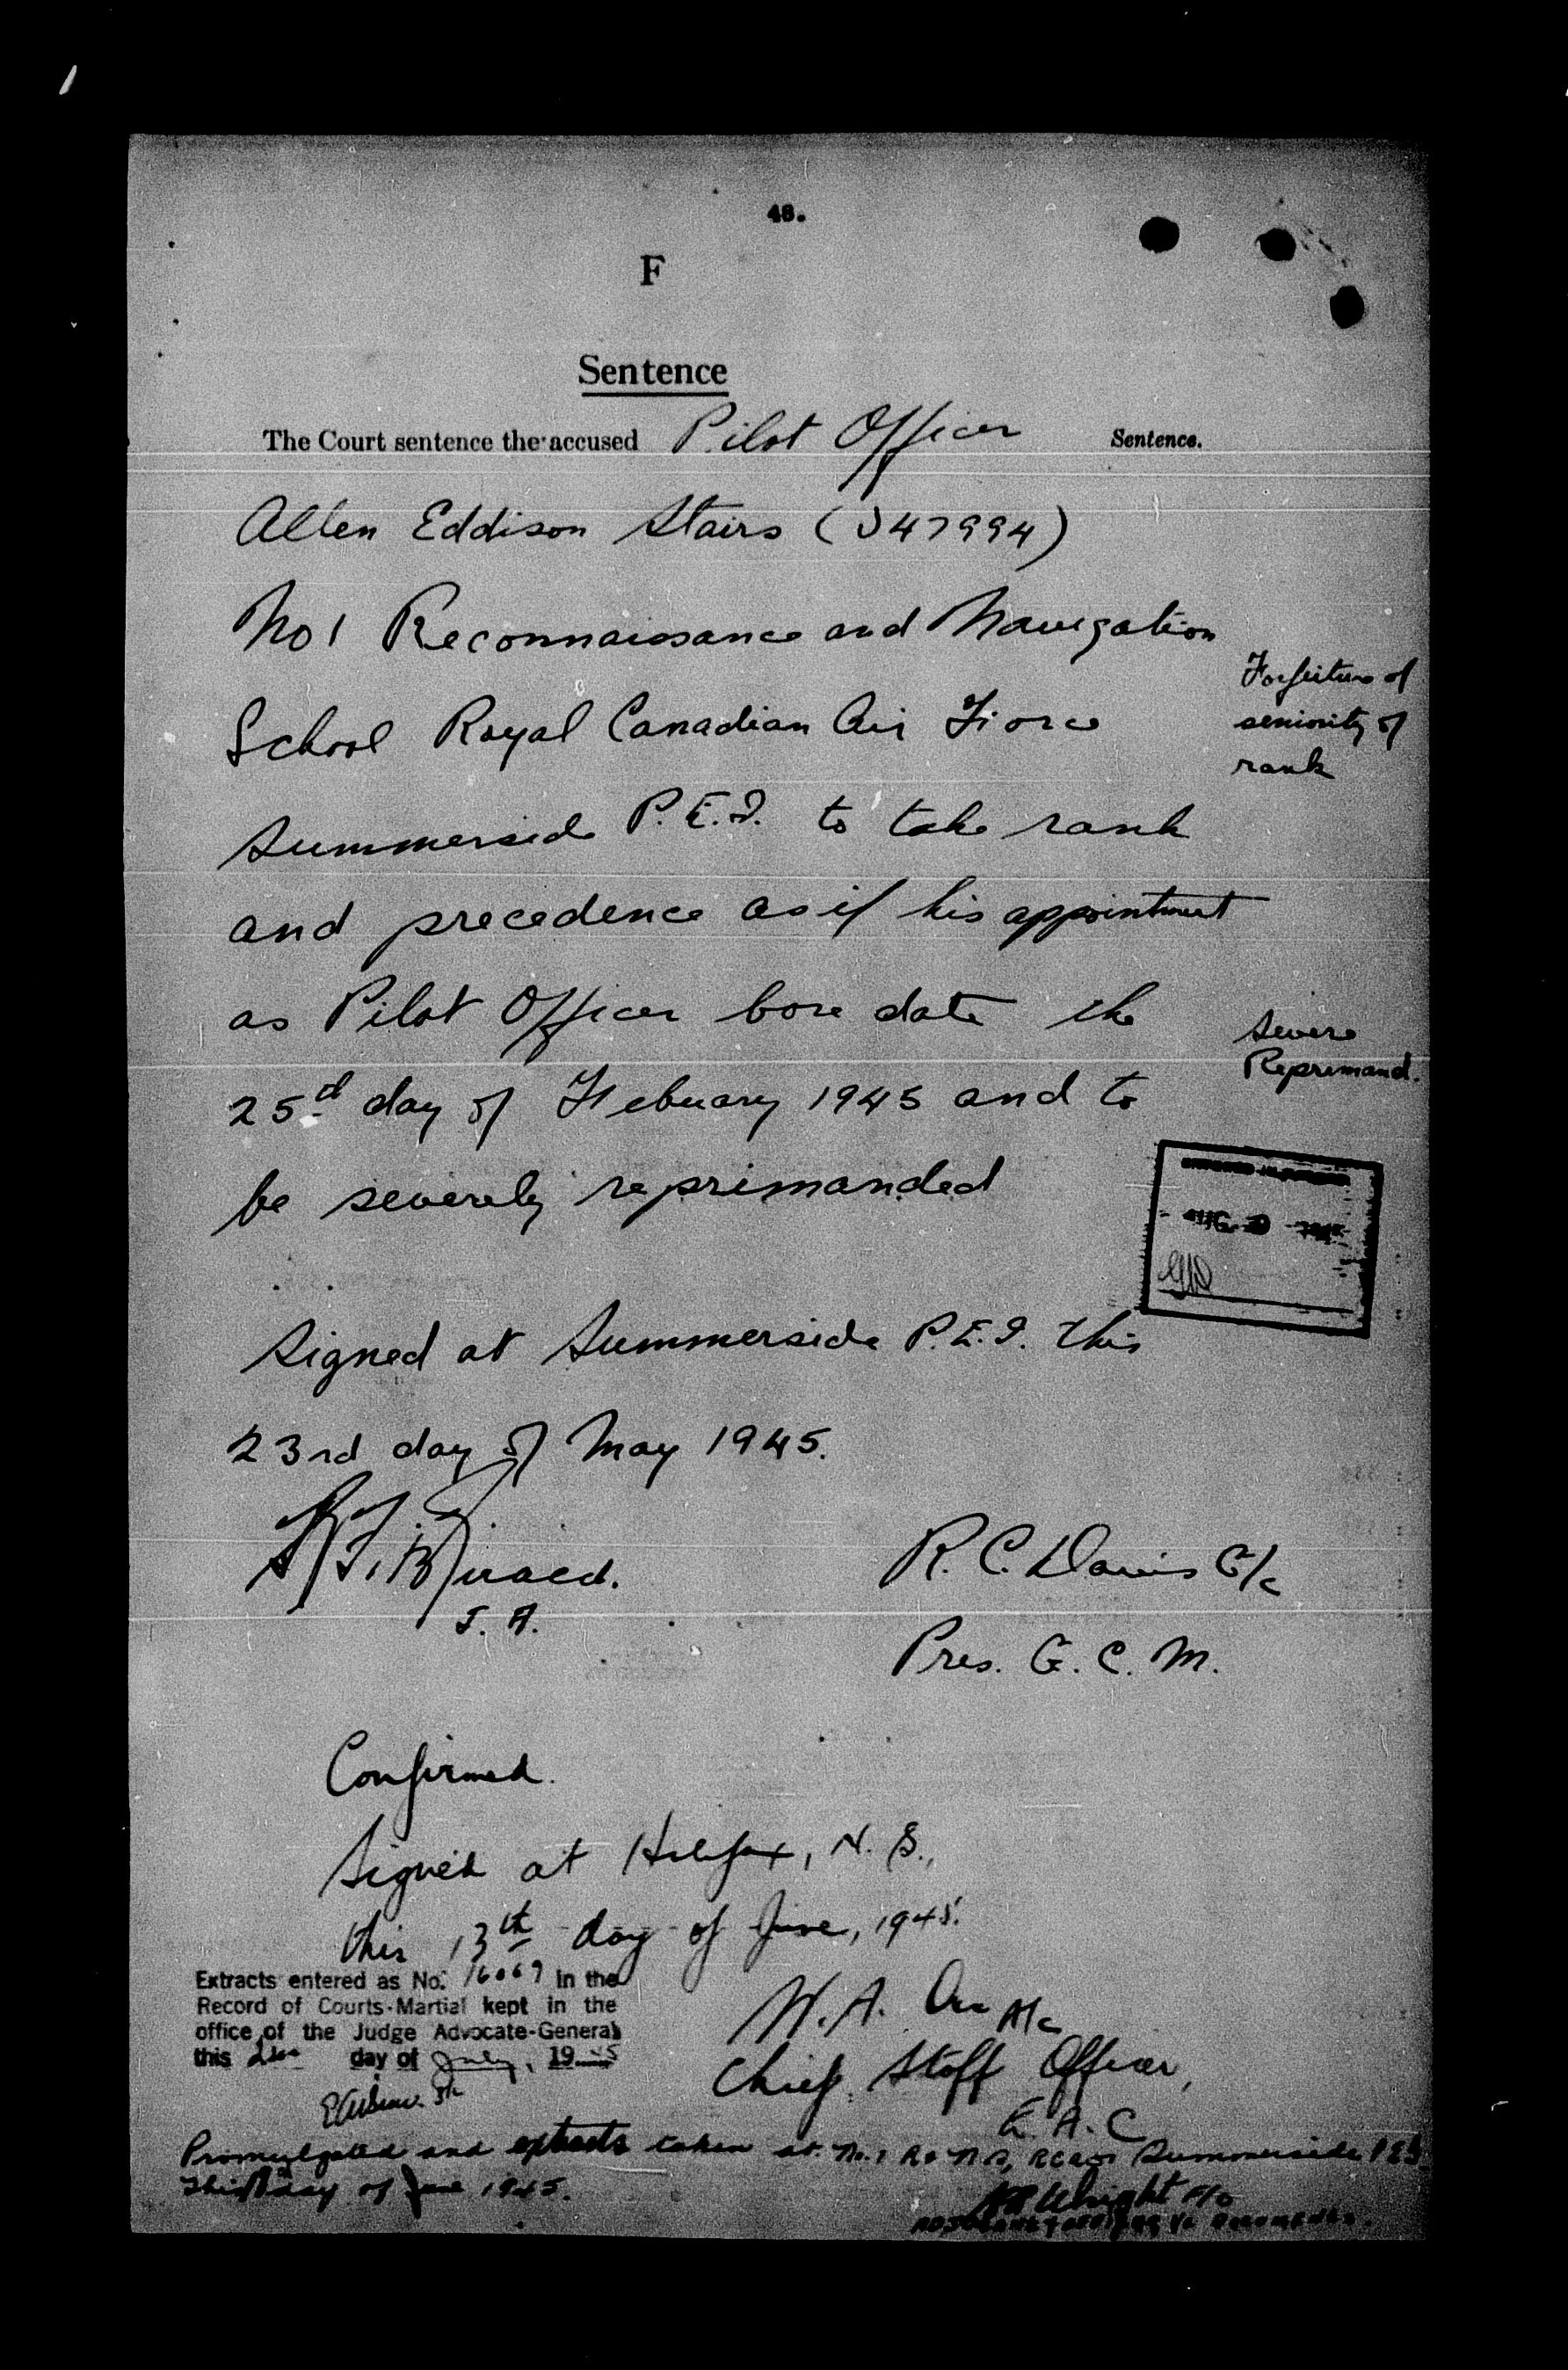 48.
F
Sentence
The Court sentence the accused Pilot Officer
Sentence.
Allen Eddison Stairs (J47994)
No 1 Reconnaissance and Navigation
School Royal Canadian Air Force
Summerside P.E.I. to take rank
and precedence as if his appointment
as Pilot Officer bore date the
25d day of Febuary 1945 and to
be severely reprimanded
Forfeiture of
seniority of
rank
Severe
Reprimand.
AUG
Signed at Summerside P.E.I. this
23rd day of May 1945.
J. A.
R. C. Davis G/C
Pres. G. C. M.
Confirmed.
Signed at Halifax, N. S.,
this 13th day of June, 1945.
W. A. Orr A/C
Chief Staff Officer,
E. A. C
Extracts entered as No. 16067 in the
Record of Courts-Martial kept in the
office of the Judge Advocate-General
this day of July, 1945
Promulgated and extracts taken at No.1 R & N S, RCAF Summerside PEI
This day of June 1945.
Wright F/O